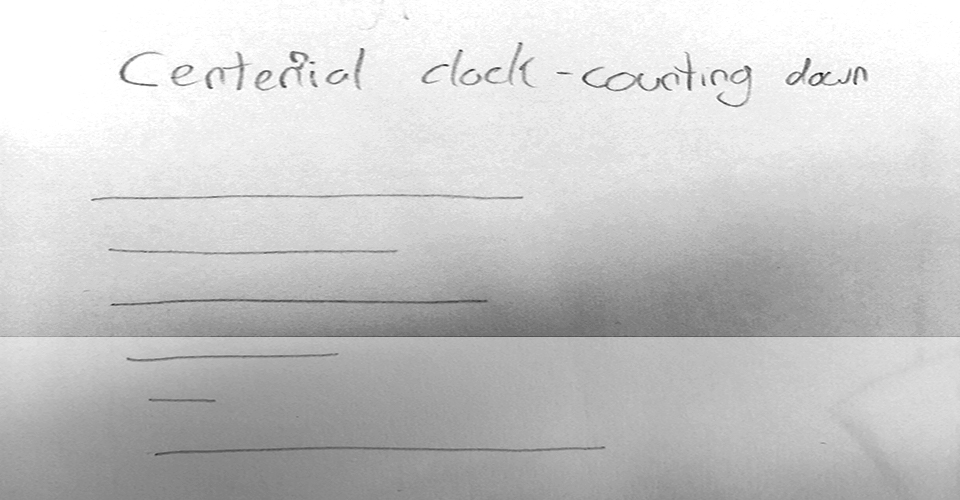 Centenial clock - counting down